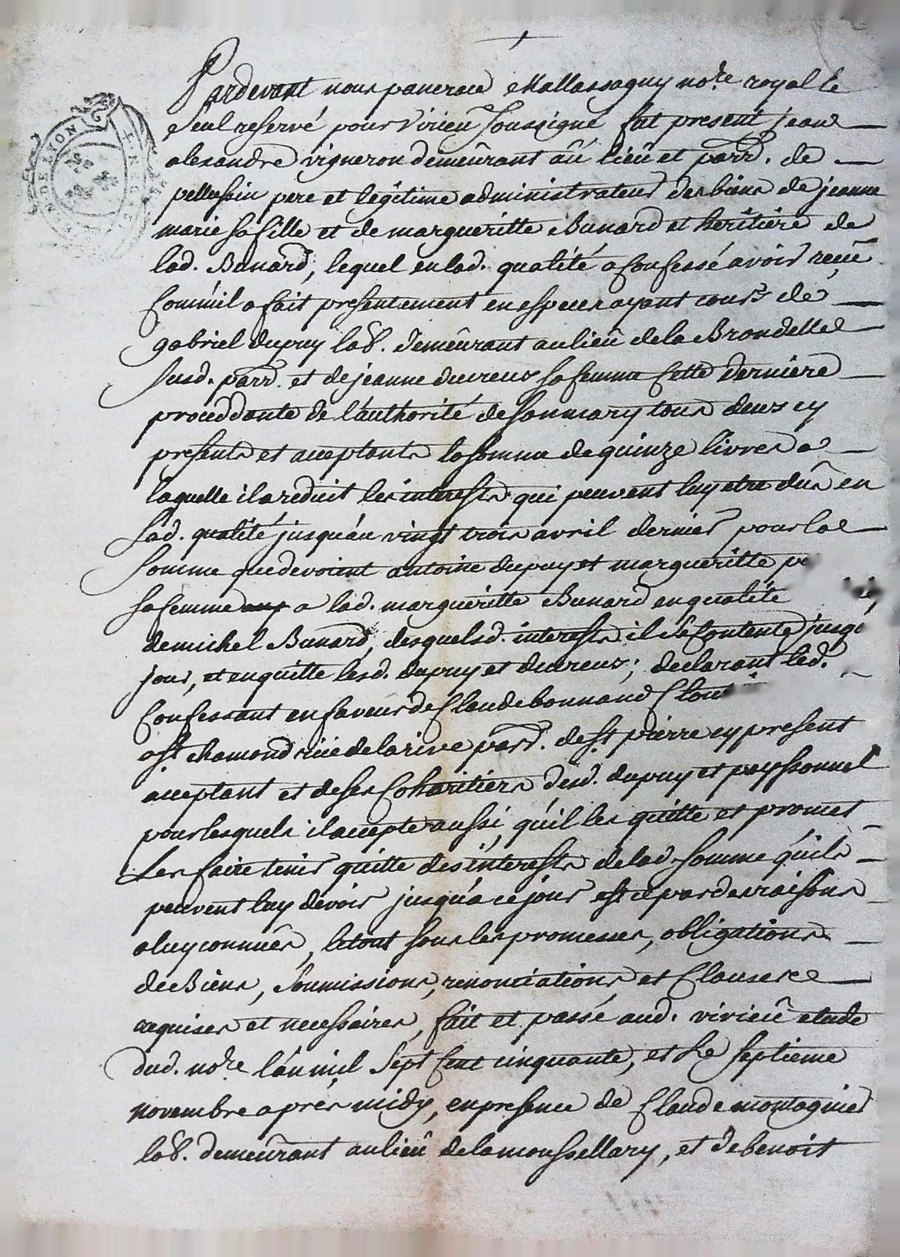 Pardevant nous pancrace Mallassagny no.re royal le
seul reservé pour virieu soussigné fut present jean
alexandre vigneron demeurant au lieu et parr. de
pellussin pere et legitime administrateur des biens de jeanne
marie sa fille et de margueritte Bunard et heritiere de
lad. Bunard, lequel en lad. qualité a confessé avoir reçeu
comm'il a fait presentement en especes ayant cours de
gabriel dupuy lab. demeurant au lieu de la Brondelle
susd. parr. et de jeanne ducreux sa femme cette derniere
proceddante de l'authorité de son mary tous deux cy
presents et acceptants la somme de quinze livres a
laquelle il a reduit les interests qui peuvent luy etre dus en
lad. qualité jusqu'au vingt trois avril dernier pour la
somme que devoient antoine dupuy et margueritte
sa femme a lad. margueritte Bunard en qualité
de michel Bunard, desquels d. interests il se contente jusqu
jour, et en quitte lesd. dupuy et ducreux; declarant led.
confessant en faveur de Claude bonnand Clout
a st. chamond rüe de la rive parr. de st pierre cy present
acceptant et de ses coheritiers desd. dupuy et peyssonnel
pour lesquels il accepte aussi, qu'il les quitte et promet
les faire tenir quitte des interests de lad. somme qu'ils
peuvent luy devoir jusqu'a ce jour est ce par des raisons
a luy connuës, le tout sous les promesses, obligations
de Biens, soumissions, renonciations et Clauses
requises et necessaires, fait et passé aud. virieu etude
dud. no.re l'an mil sept cent cinquante, et le septieme
novembre aprés midy, en presence de Claude montagnier
lab. demeurant au lieu de la moussellary, et de benoit